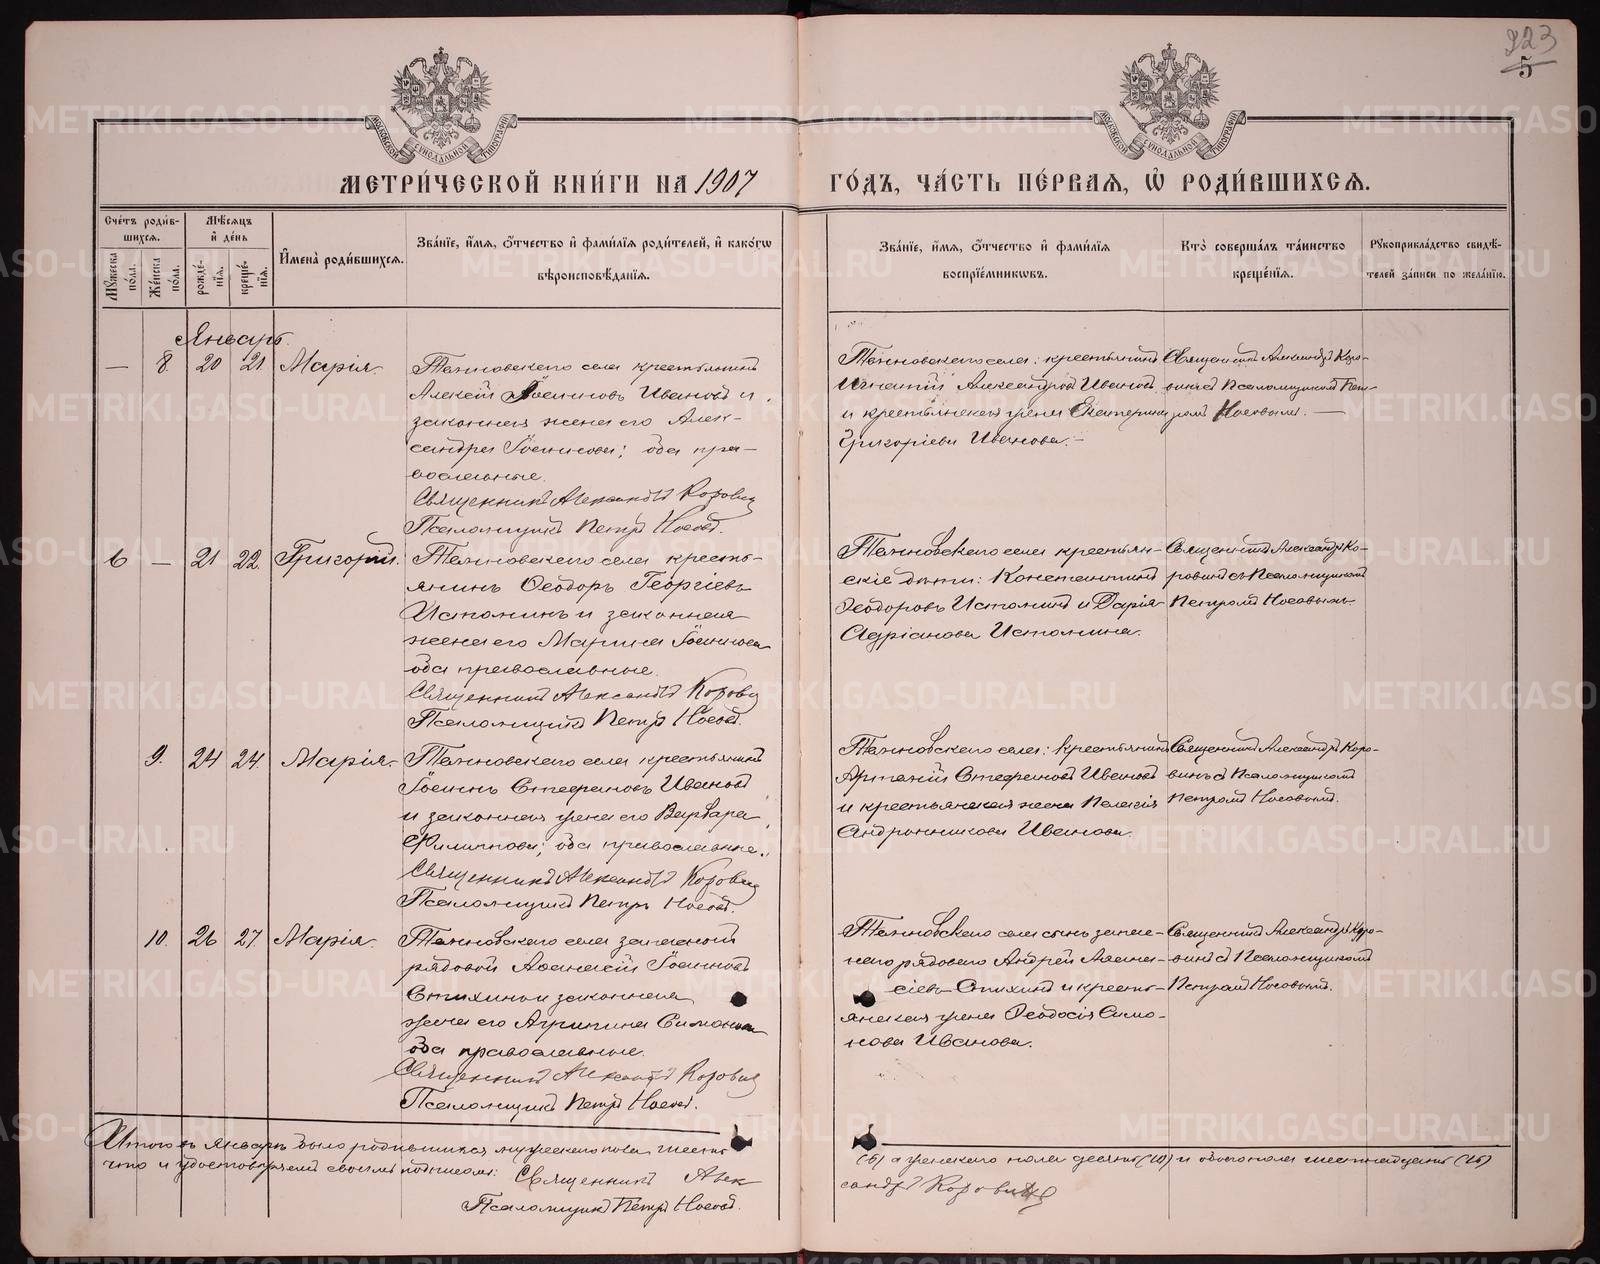 923
5
МОСКОВСКОЙ СУНОДАЛЬНОЙ ТИПОГРАФІИ
МОСКОВСКОЙ СУНОДАЛЬНОЙ ТИПОГРАФІИ
МЕТРИ́ЧЕСКОЙ КНИ́ГИ НА 1907 ГО́ДЪ, ЧА́СТЬ ПЕ́РВАЯ, Ѡ҆ РОДИ́ВШИХСЯ.
Сче́тъ роди́в-
шихся.
Мꙋжеска по́ла.
Же́нска по́ла.
Мѣ́сяцъ
и҆ де́нь
рожде́-
нїя.
креще́-
нїя.
И҆мена̀ роди́вшихся.
Зва́нїе, и҆́мя, ѻ҆́тчество и҆ фами́лїя роди́телей, и҆ како́гѡ
вѣроисповѣ́данїя.
Зва́нїе, и҆́мя, ѻ҆́тчество и҆ фами́лїя
воспрїе́мникѡвъ.
Кто̀ соверша́лъ та́инство
креще́нїя.
Рꙋкоприкла́дство свидѣ́-
телей за́писи по жела́нїю.
Январь.
— 8. 20 21. Марія.
села крестьянинъ
Алексій Іоанновъ Ивановъ и
законная жена его Алек-
сандра Іоаннова; оба пра-
вославные.
Священникъ Александръ Коровин
Псаломщикъ Петръ Носовъ.
села: крестьянинъ
Игнатій Александровъ Ивановъ
и крестьянская жена Екатерина
Григоріева Иванова.—
Священникъ Александръ Коро-
винъ съ Псаломщикомъ Пет-
ромъ Носовымъ. —
6 — 21 22. Григорій.
села кресть-
янинъ Ѳеодоръ Георгіевъ
Истоминъ и законная
жена его Марина Іоаннова
оба православные.
Священникъ Александръ Коровин
Псаломщикъ Петръ Носовъ.
села крестьян-
скіе дѣти: Константинъ
Ѳеодоровъ Истоминъ и Дарія
Адріанова Истомина.
Священникъ Александръ Ко-
ровинъ съ Псаломщикомъ
Петромъ Носовымъ.
9. 24 24. Марія.
села крестьянинъ
Іоаннъ Стефановъ Ивановъ
и законная жена его Варвара
Филиппова; оба православные.
Священникъ Александръ Коровин
Псаломщикъ Петръ Носовъ.
села: крестьянинъ
Артемій Стефановъ Ивановъ
и крестьянская жена Пелагія
Андронникова Иванова.
Священникъ Александръ Коро-
винъ съ Псаломщикомъ
Петромъ Носовымъ.
10. 26 27. Марія.
села запасной
рядовой Аѳанасій Іоанновъ
Стихинъ и законная
жена его Агрипина Симонова
оба православные.
Священникъ Александръ Коровин
Псаломщикъ Петръ Носовъ.
села сынъ запас-
наго рядоваго Андрей Аѳана-
сіевъ Стихинъ и кресть-
янская жена Ѳеодосія Симо-
нова Иванова.
Священникъ Александръ Коро-
винъ съ Псаломщикомъ
Петромъ Носовымъ.
Итого въ Январѣ было родившихся мужескаго пола шесть
(6) а женскаго пола десять (10) и обоего пола шестнадцать (16)
что и удостовѣряемъ своимъ подписомъ: Священникъ Алек
сандръ Коровинъ
Псаломщикъ Петръ Носовъ.
METRIKI.GASO-URAL.RU